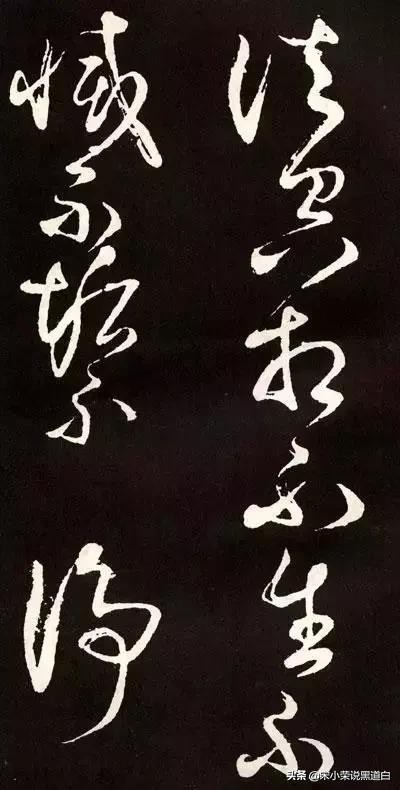 法空相不生不
滅不垢不
淨
头条 @小荣说黑道白